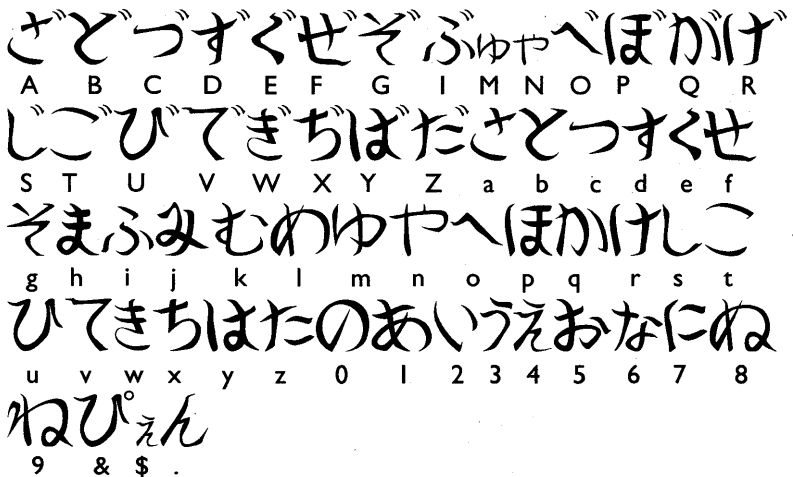 ざどづずぐぜぞぶゅゃべぼがげ
A B C D E F G I M N O P Q R
じごびでぎぢばださとつすくせ
S T U V W X Y Z a b c d e f
そまふみむめゆやへほかけしこ
g h i j k l m n o p q r s t
ひてきちはたのあいうえおなにぬ
u v w x y z 0 1 2 3 4 5 6 7 8
ねぴぇん
9 & $ .